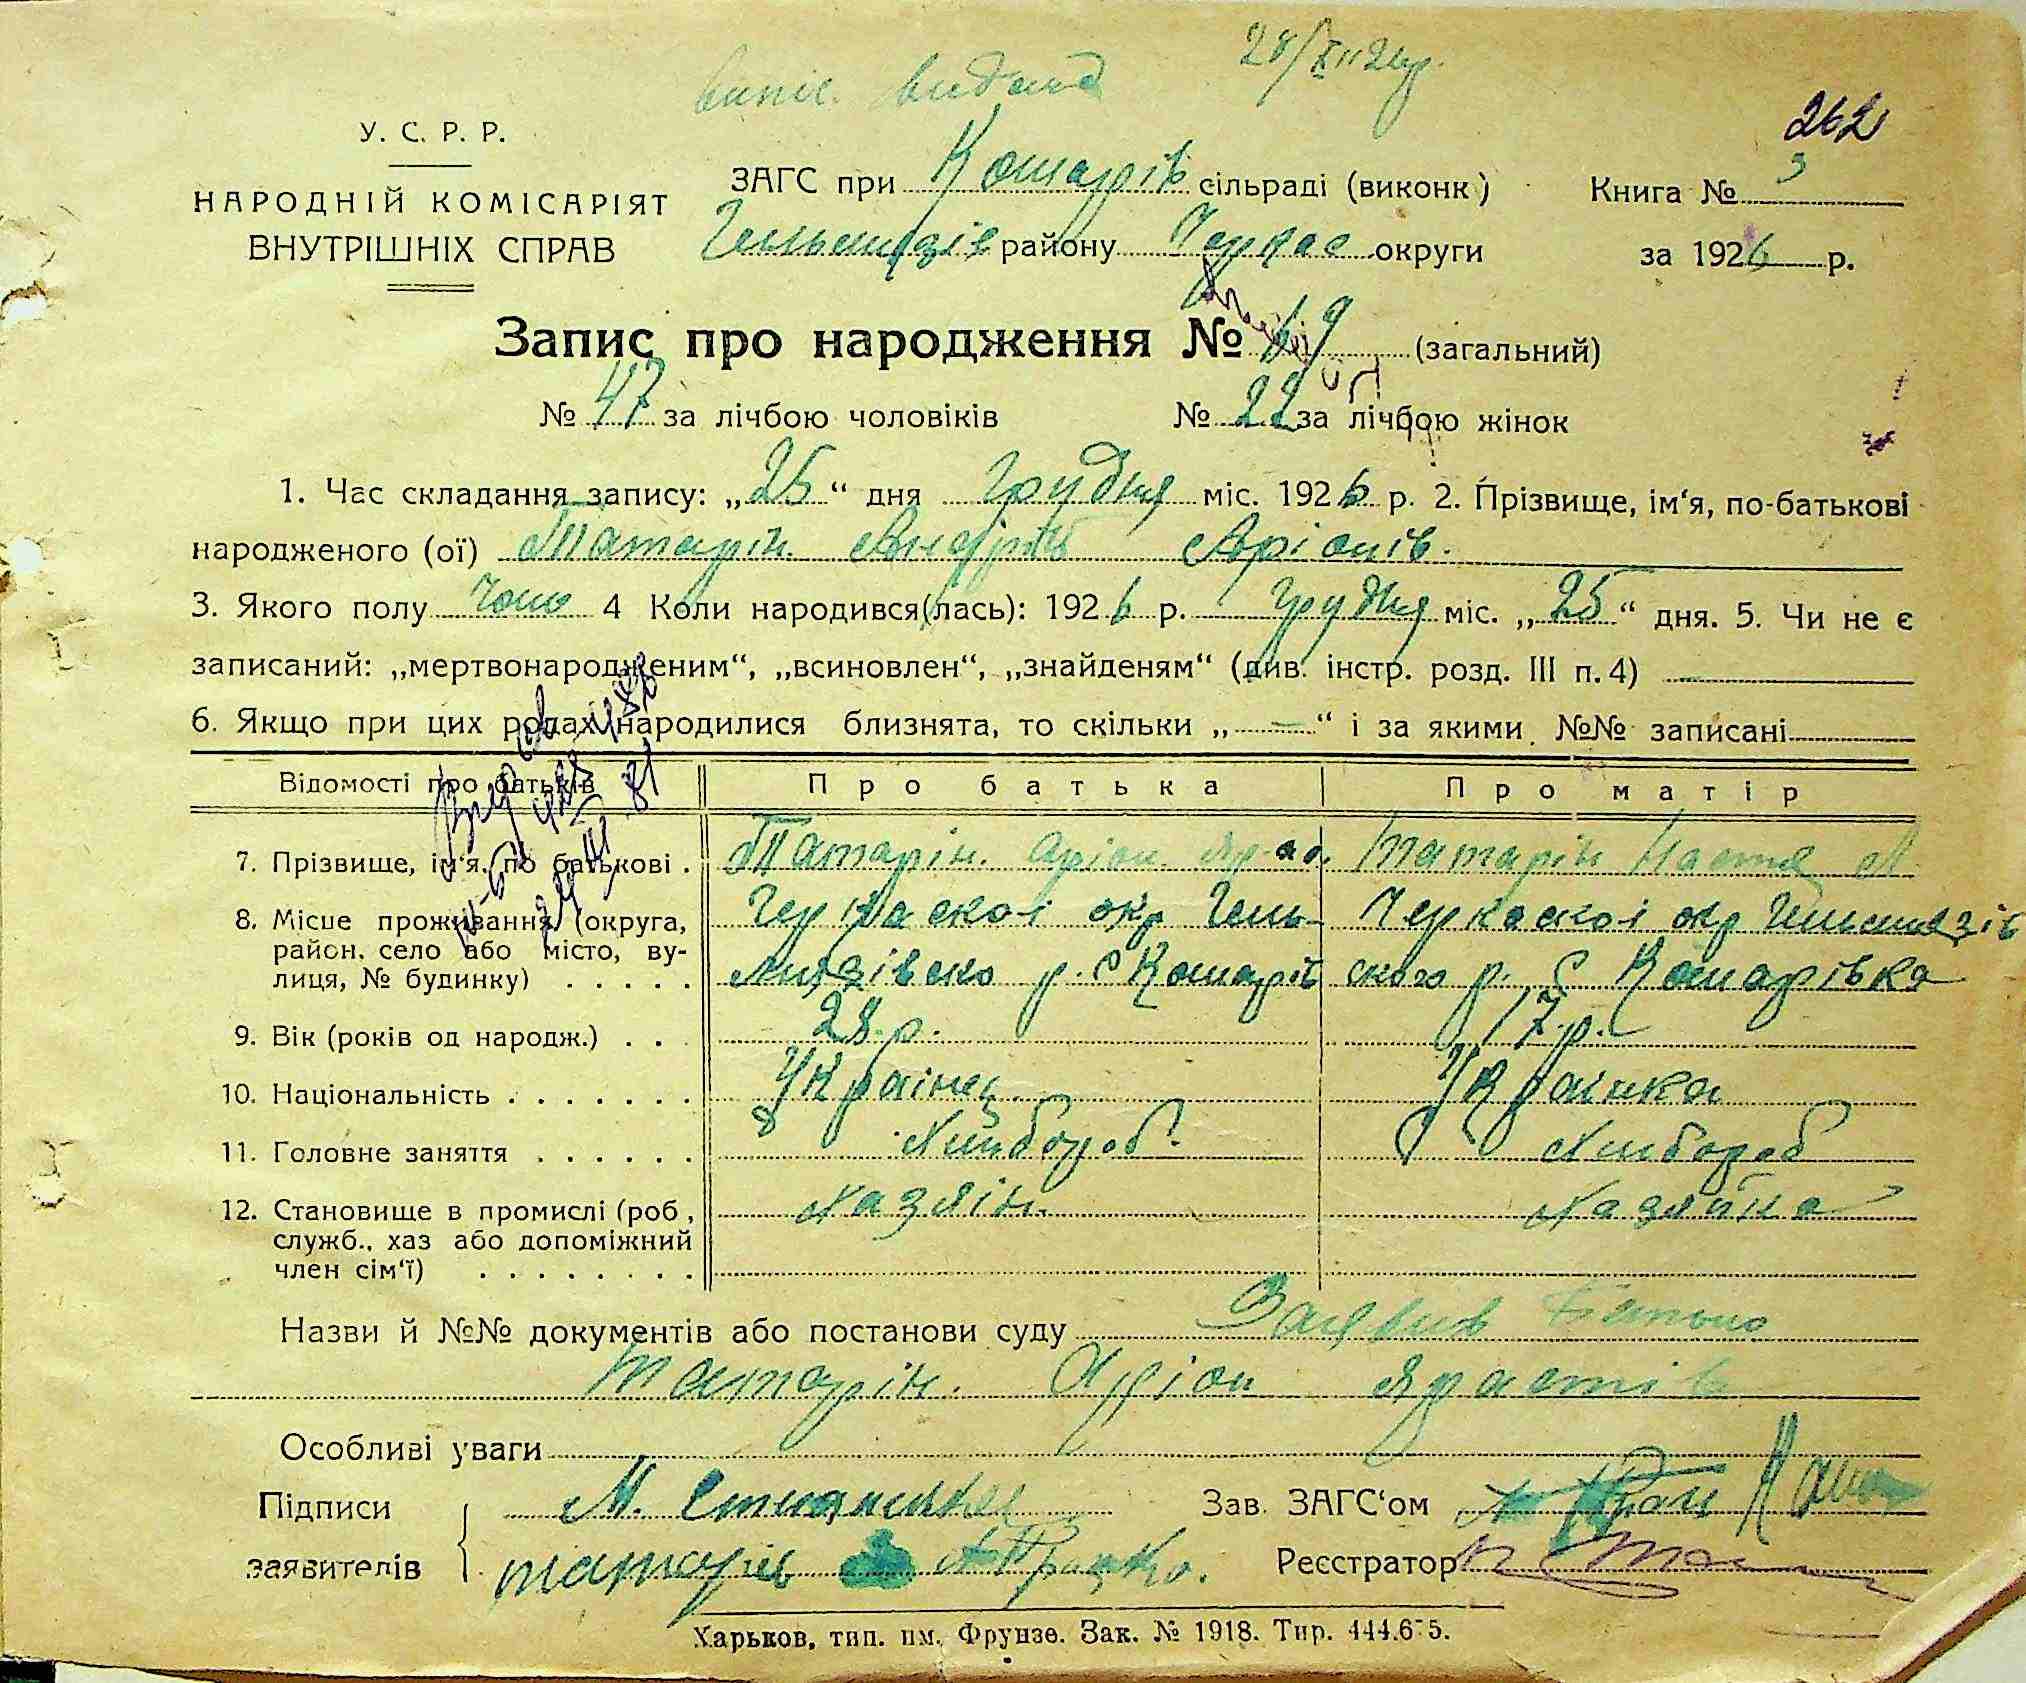 випіс. видана 28/XII 26 р.
262
У. С. Р. Р.
НАРОДНІЙ КОМІСАРІЯТ
ВНУТРІШНІХ СПРАВ
ЗАГС при Кошарів сільраді (виконк)
Гельмязів району Черкас округи
Книга № 3
за 1926 р.
Запис про народження № 69 (загальний)
№ 47 за лічбою чоловіків № 22 за лічбою жінок
1. Час складання запису: „25“ дня грудня міс. 1926 р. 2. Прізвище, ім‘я, по-батькові
народженого (ої) Татарін Андрій Аріонів.
3. Якого полу чоло 4 Коли народився(лась): 1926 р. грудня міс. „25“ дня. 5. Чи не є
записаний: „мертвонародженим“, „всиновлен“, „знайденям“ (див. інстр. розд. III п. 4)
6. Якщо при цих родах народилися близнята, то скільки „—“ і за якими №№ записані
Відомості про батьків Про батька Про матір
7. Прізвище, ім‘я, по батькові . Татарін. Аріон. Татарін Настя
8. Місце проживання (округа, Черкаскоі окр Гель- Черкаскоі окр Гельмязів
район, село або місто, ву- мязівско р. с Кошарів ского р. с Кошарівка
лиця, № будинку) . . . . .
9. Вік (років од народж.) . . . 28 р. 17 р.
10. Національність . . . . . . . Украінец Украінка
11. Головне заняття . . . . . . Хлібороб. Хлібороб
12. Становище в промислі (роб, Хазяін. Хазяйка
служб., хаз або допоміжний
член сім‘ї) . . . . . . . .
Назви й №№ документів або постанови суду Заявив батько
Татарін. Аріон
Особливі уваги
Підписи М. Зав. ЗАГС‘ом
заявителів Реєстратор
Харьков, тип. им. Фрунзе. Зак. № 1918. Тир. 444.675.